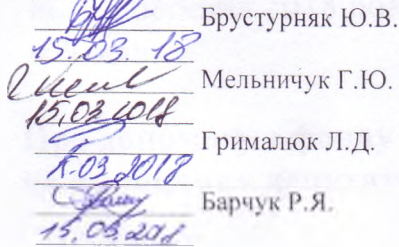 Брустурняк Ю.В.
15.03.18
Мельничук Г.Ю.
15.03.2018
Грималюк Л.Д.
15.03.2018
Барчук Р.Я.
15.03.2018